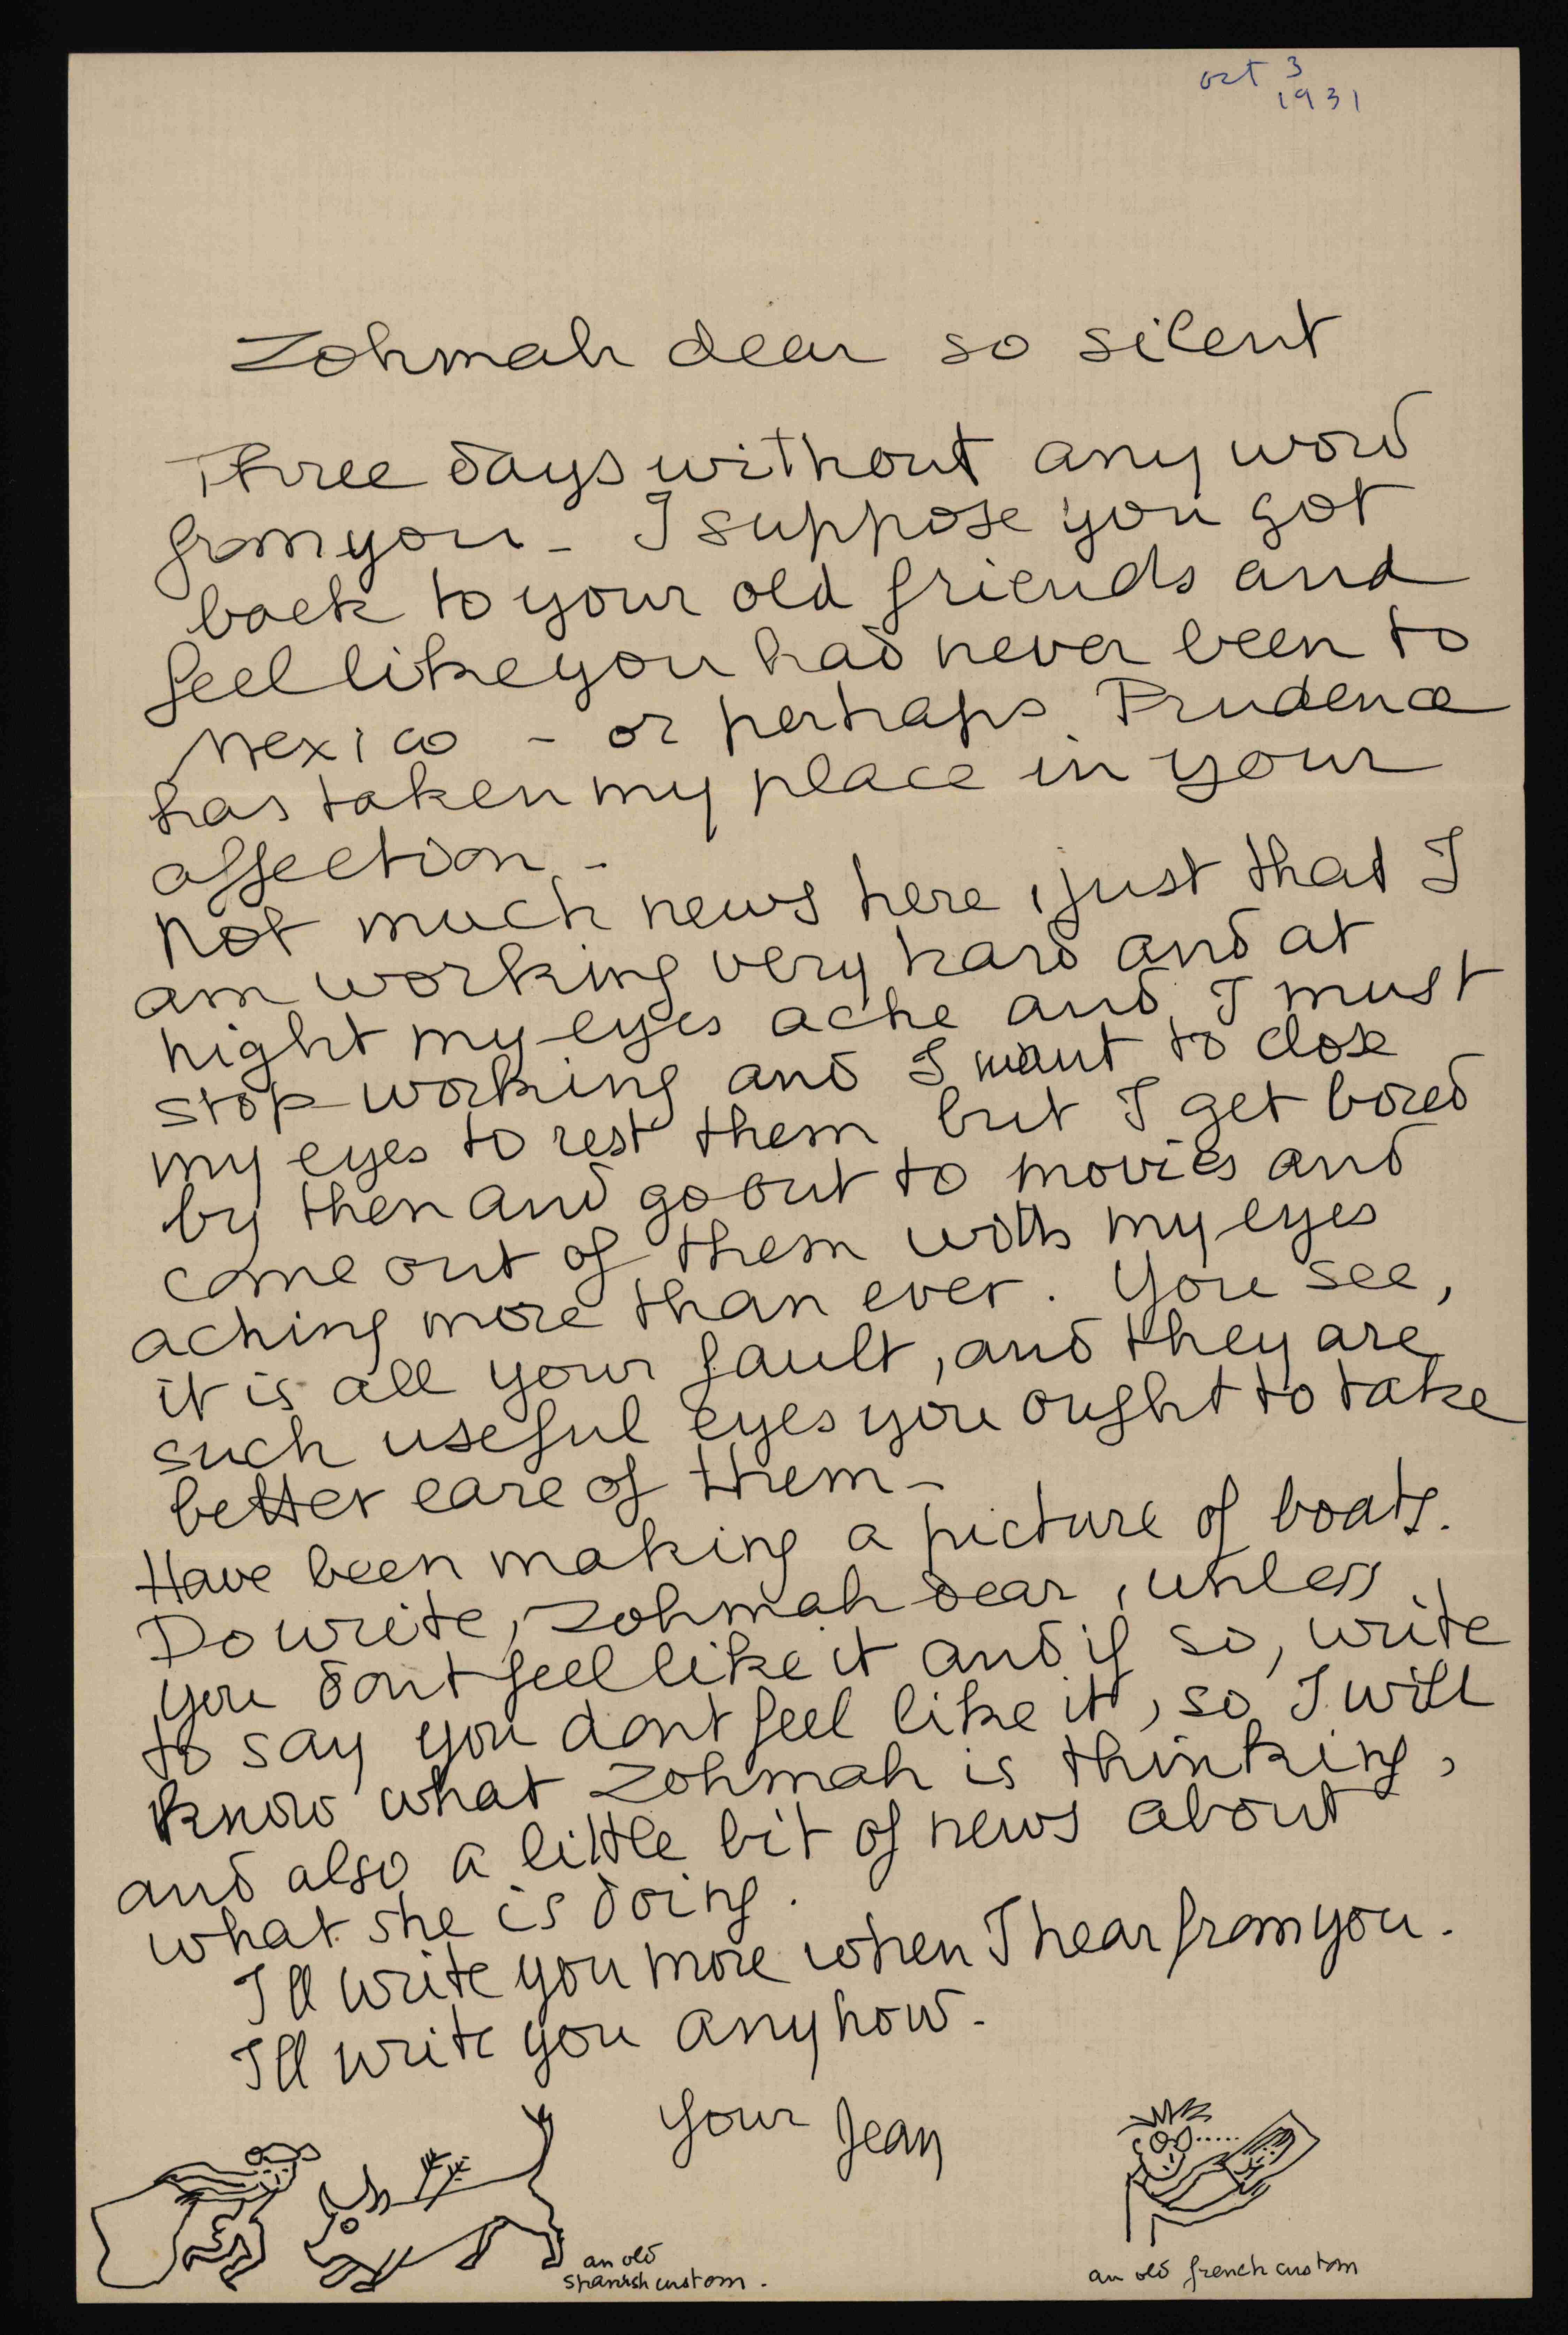 oct 3
1931
Zohmah dear so silent
Three days without any word
from you - I suppose you got
back to your old friends and
feel like you had never been to
Mexico - or perhaps Prudence
has taken my place in your
affection -
Not much news here, just that I
am working very hard and at
night my eyes ache and I must
stop working and I want to close
my eyes to rest them but I get bored
by then and go out to movies and
come out of them with my eyes
aching more than ever. You see,
it is all your fault, and they are
such useful eyes you ought to take
better care of them -
Have been making a picture of boats.
Do write, Zohmah dear, unless
you dont feel like it and if so, write
to say you dont feel like it, so I will
know what Zohmah is thinking,
and also a little bit of news about
what she is doing.
I ll write you more when I hear from you.
Ill write you anyhow.
your Jean
an old
spanish custom.
an old french custom